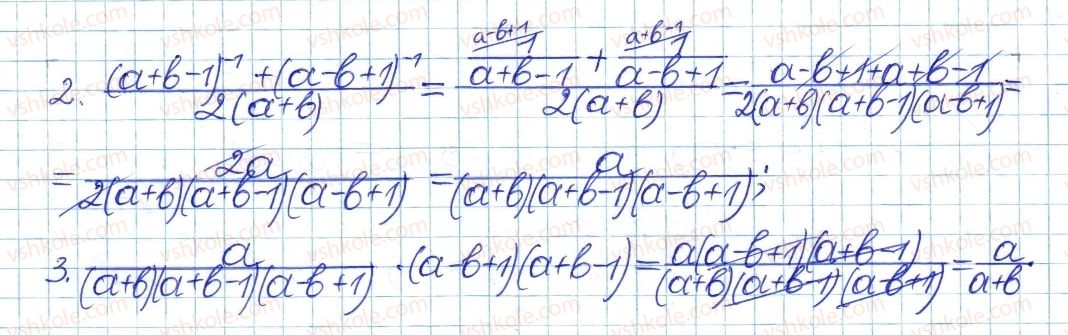 2. ((a+b-1)^-1 + (a-b+1)^-1) / (2(a+b)) = ((a-b+1) 1/(a+b-1) + (a+b-1) 1/(a-b+1)) / (2(a+b)) = (a-b+1+a+b-1) / (2(a+b)(a+b-1)(a-b+1)) =
= 2a / (2(a+b)(a+b-1)(a-b+1)) = a / ((a+b)(a+b-1)(a-b+1));
3. a / ((a+b)(a+b-1)(a-b+1)) · (a-b+1)(a+b-1) = a(a-b+1)(a+b-1) / ((a+b)(a+b-1)(a-b+1)) = a / (a+b).